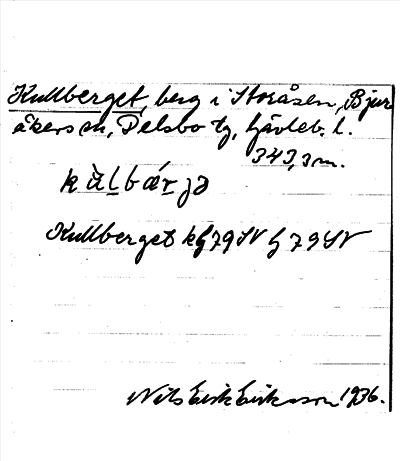 Kullberget, berg i Storåsen, Bjur
åkers sn, Delsbo tg, Gävleb. l.
343,3 m.
kùlbárjə
Kullberget kg 79 SV g 79 SV
Nils Erik Eriksson 1936.